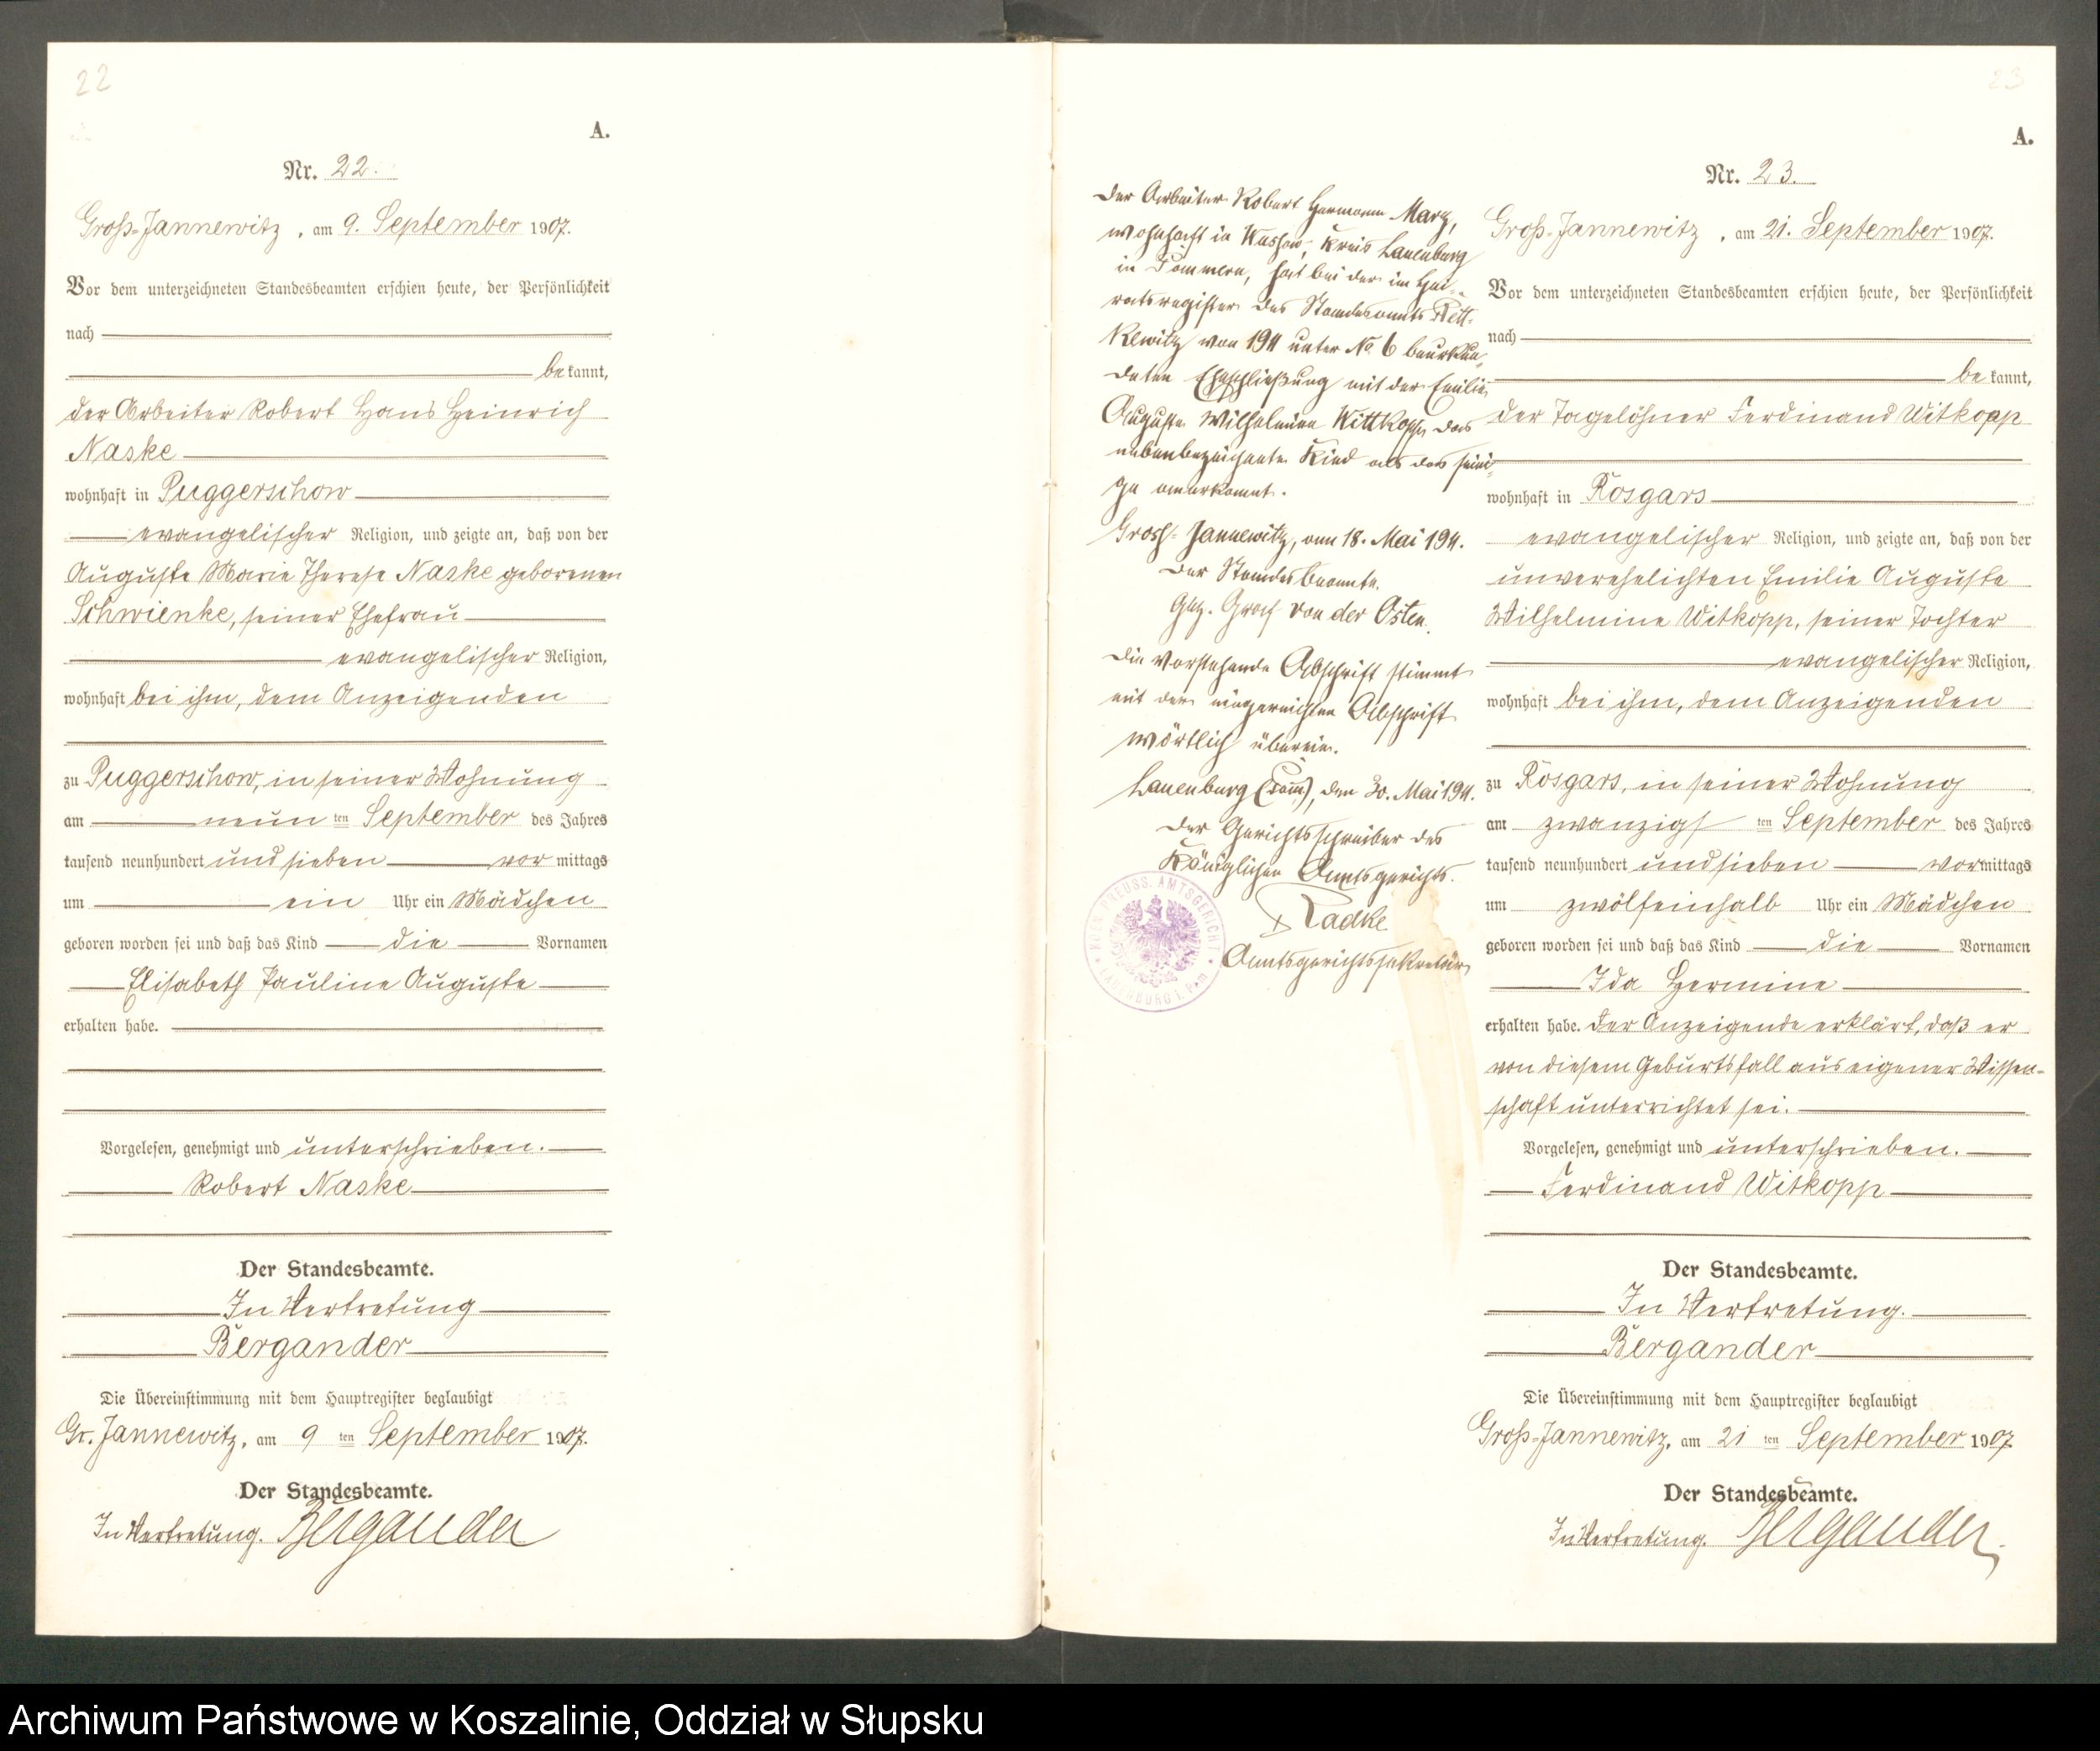 22
A.
Nr. 22.
Groß-Jannewitz, am 9. September 1907.
Vor dem unterzeichneten Standesbeamten erschien heute, der Persönlichkeit
nach
be kannt,
der Arbeiter Robert Hans Heinrich
Naske
wohnhaft in Puggerschow
evangelischer Religion, und zeigte an, daß von der
Auguste Marie Therese Naske geborenen
Schwienke, seiner Ehefrau
evangelischer Religion,
wohnhaft bei ihm, dem Anzeigenden
zu Puggerschow, in seiner Wohnung
am neun ten September des Jahres
tausend neunhundert und sieben vor mittags
um ein Uhr ein Mädchen
geboren worden sei und daß das Kind die Vornamen
Elisabeth Pauline Auguste
erhalten habe.
Vorgelesen, genehmigt und unterschrieben.
Robert Naske
Der Standesbeamte.
In Vertretung
Bergander
Die Übereinstimmung mit dem Hauptregister beglaubigt
Gr. Jannewitz, am 9 ten September 1907.
Der Standesbeamte.
In Vertretung. Bergander
Der Arbeiter Robert Hermann Marz,
wohnhaft in Kreis Lauenburg
in Pommern, hat bei der im Hei-
ratsregister des Standesamts Rett-
kewitz von 1911 unter No 6 beurkun-
deten Eheschließung mit der Emilie
Auguste Wilhelmine Wittkopp das
nebenbezeichnete Kind als das seini-
ge anerkannt.
Gross-Jannewitz, am 18. Mai 1911.
Der Standesbeamte.
Gez. Graf von der Osten.
Die vorstehende Abschrift stimmt
mit der eingereichten Abschrift
wörtlich überein.
Lauenburg (Pom), den 30. Mai 1911.
Der Gerichtsschreiber des
Königlichen Amtsgerichts.
Radtke
Amtsgerichtssekretär
KOEN. PREUSS. AMTSGERICHT
LAUENBURG i. Pom
23
A.
Nr. 23.
Groß-Jannewitz, am 21. September 1907.
Vor dem unterzeichneten Standesbeamten erschien heute, der Persönlichkeit
nach
be kannt,
der Tagelöhner Ferdinand Witkopp
wohnhaft in Rosgars
evangelischer Religion, und zeigte an, daß von der
unverehelichten Emilie Auguste
Wilhelmine Witkopp, seiner Tochter
evangelischer Religion,
wohnhaft bei ihm, dem Anzeigenden
zu Rosgars, in seiner Wohnung
am zwanzigs ten September des Jahres
tausend neunhundert und sieben vor mittags
um zwölfeinhalb Uhr ein Mädchen
geboren worden sei und daß das Kind die Vornamen
Ida Hermine
erhalten habe. Der Anzeigende erklärt, daß er
von diesem Geburtsfall aus eigener Wissen-
schaft unterrichtet sei.
Vorgelesen, genehmigt und unterschrieben.
Ferdinand Witkopp
Der Standesbeamte.
In Vertretung.
Bergander
Die Übereinstimmung mit dem Hauptregister beglaubigt
Groß-Jannewitz, am 21 ten September 1907
Der Standesbeamte.
In Vertretung. Bergander
Archiwum Państwowe w Koszalinie, Oddział w Słupsku